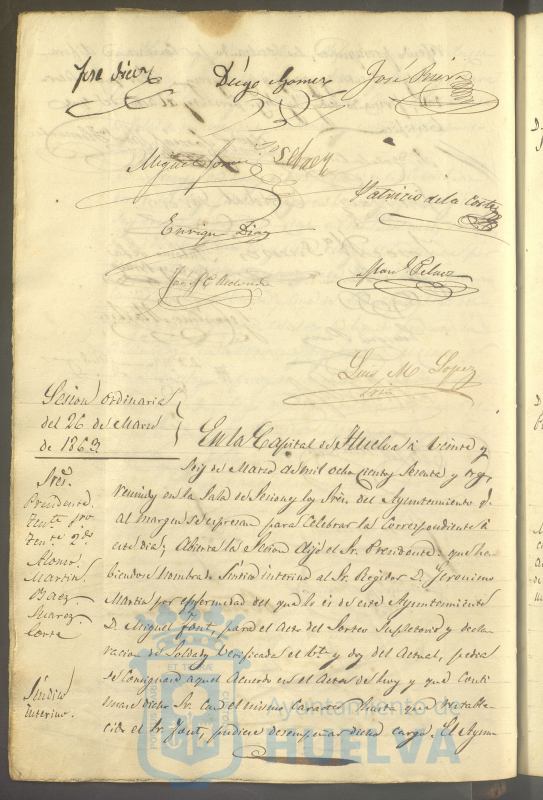 José Diez
Diego Gomez
José
Miguel
Patricio de la Corte
Enrique Diaz
Man.l Pelaez
Luis M. Lopez
Srio
Sesion ordinaria
del 26 de Marzo
de 1863
Sres.
Presidente.
Tente. 1ro
Tente 2do
Alonso.
Martin.
Baez.
Suarez.
Corte
Sindico
Interino.
En la Capital de Huelva á veinte y
seis de Marzo de mil ochocientos sesenta y tres,
reunidos en la Sala de Sesiones los Sres. del Ayuntamiento q.
al margen se espresan para celebrar la correspondiente á
este dia; Abierta la Sesion dijo el Sr. Presidente: que ha-
biendose nombrado Sindico interino al Sr. Regidor D. Jeronimo
Martin por enfermedad del que lo es de este Ayuntamiento
D. Miguel para el Acto del Sorteo Supletorio y decla-
racion de Soldados verificada el veinte y dos del Actual, pedia
se consignara aquel Acuerdo en el Acta de hoy y que conti-
nuare dicho Sr. con el mismo caracter hasta que restable-
cido el Sr. pudiere desempeñar dicho cargo. El Ayun-
ET TERRAE
Ayuntamiento de
HUELVA